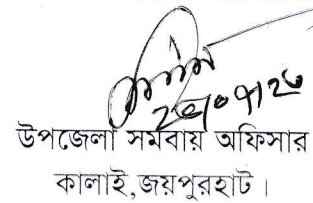 উপজেলা সমবায় অফিসার
কালাই,জয়পুরহাট।